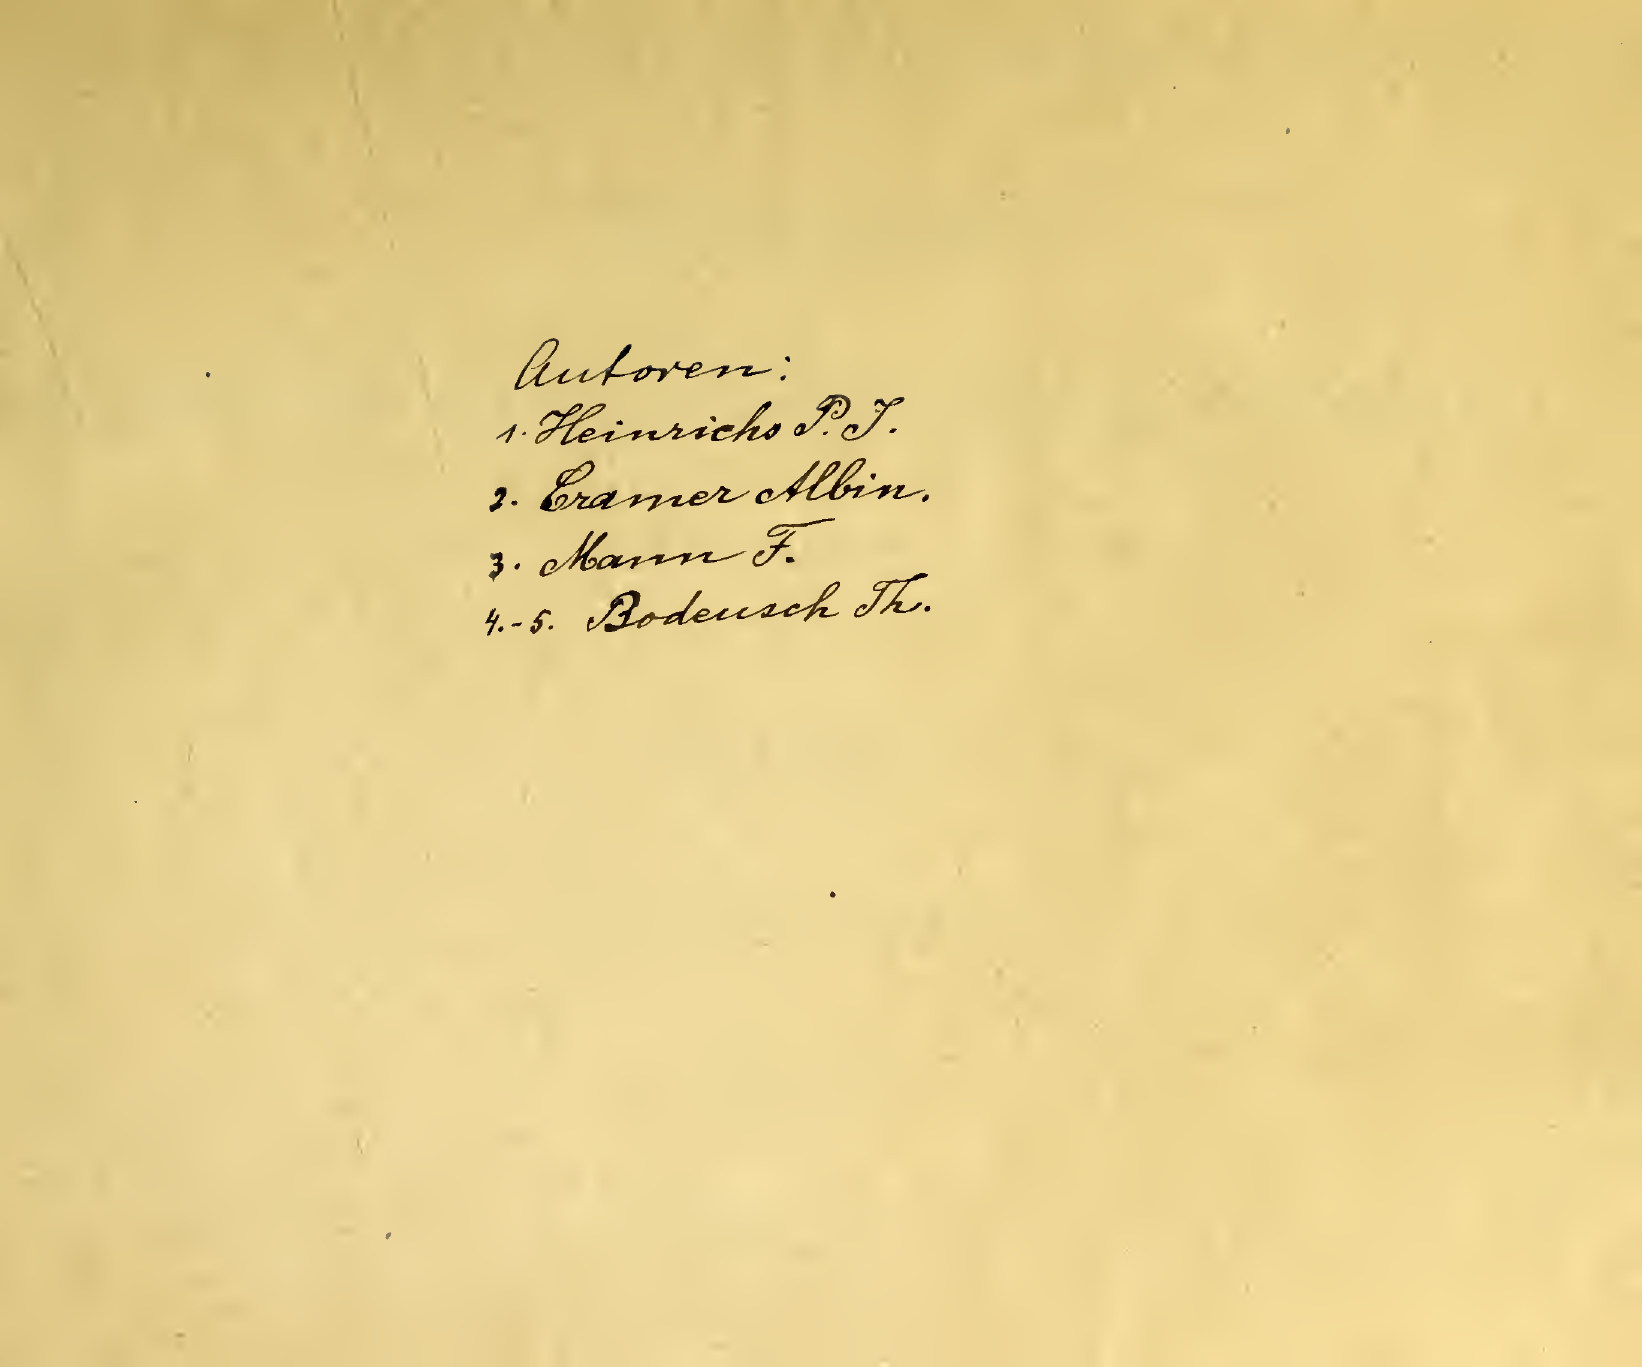 Autoren:
1. Heinrichs P. J.
2. Cramer Albin.
3. Mann F.
4.-5. Bodeusch Th.